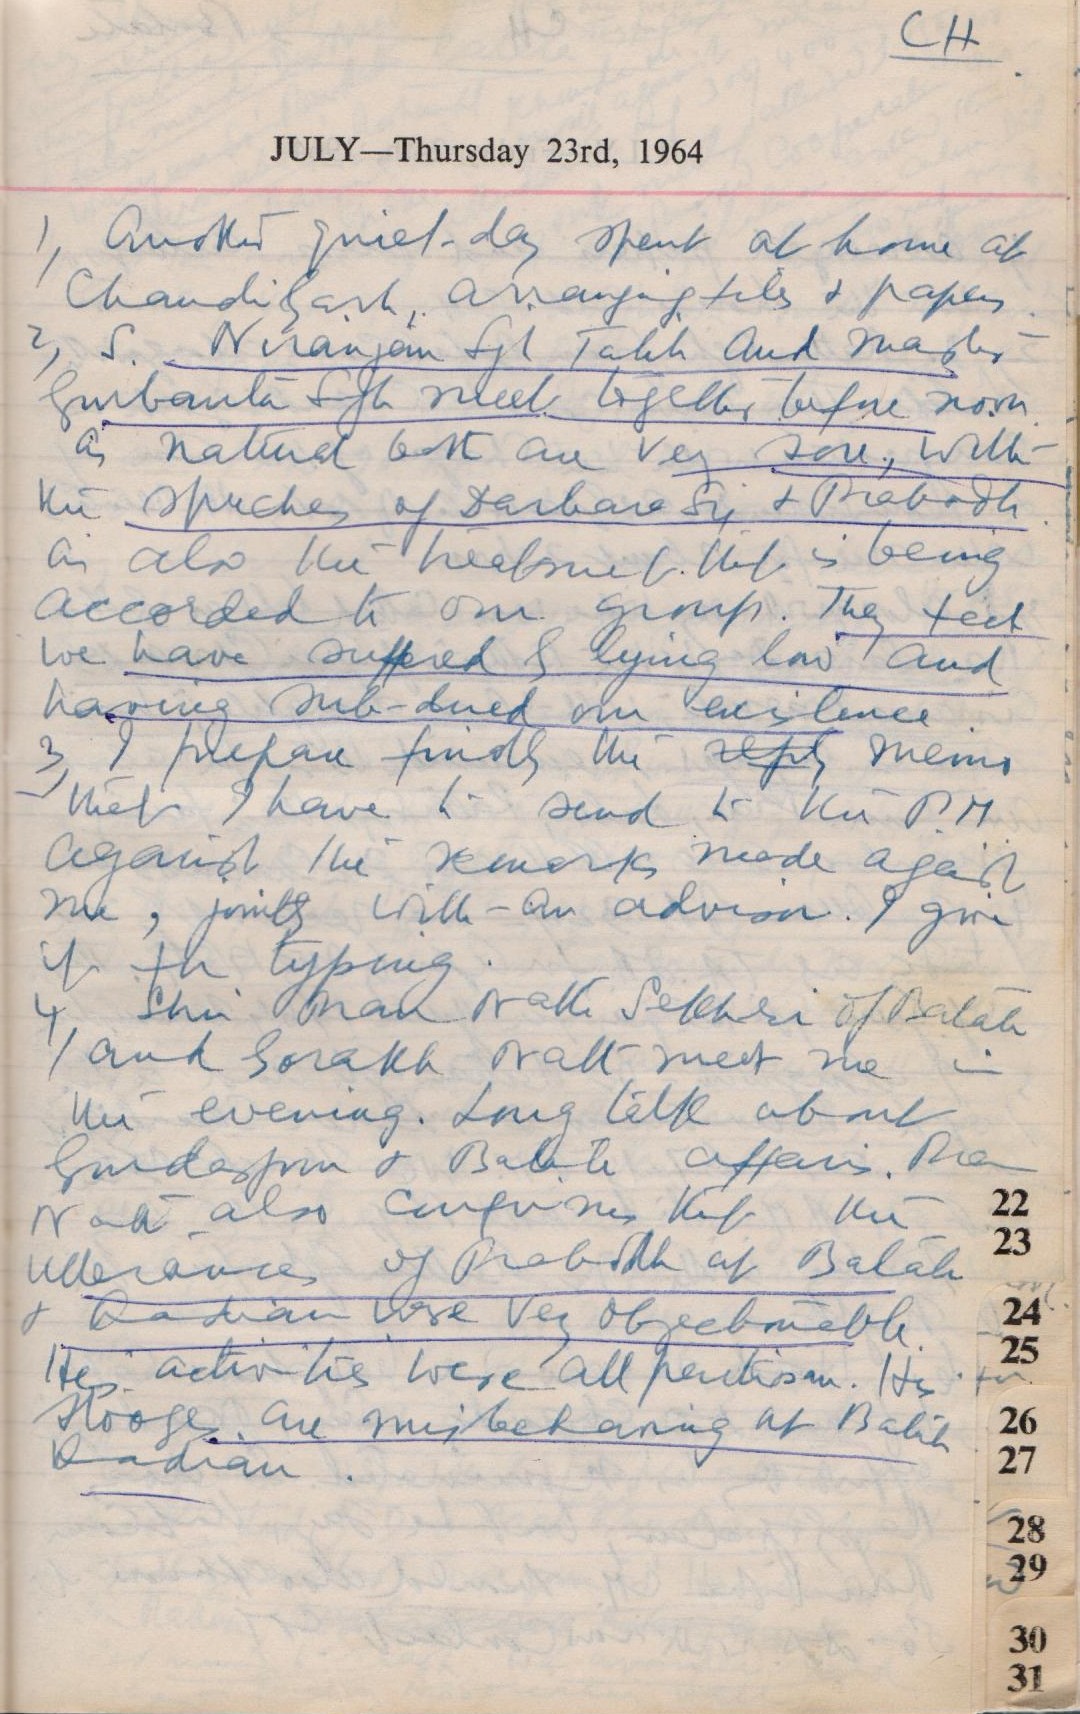 CH
JULY—Thursday 23rd, 1964
1, Another quiet-day spent at home at
Chandigarh, arranging files & papers.
2, S. Niranjan Sgh Talib and Master
Gurbanta Sgh meet together before noon
as natural both are very sore, with
the speches of Darbara Sg & Prabodh
as also the treatment that is being
accorded to our group. They feel
we have suffered by lying low and
having sub-dued our existence.
3, I prepare finally the memo
that I have to send to the P.M
against the remarks made against
me, jointly with an advisor. I give
it for typing.
4, Shri Pran Nath Sekhri of Batala
and Gorakh Nath meet me in
the evening. Long talk about
Gurdaspur & Batala affairs. Pran
Nath also confirms that the
utterances of Prabodh at Batala
& Qadian were very objectionable.
His activities were all partisan. His
stooges are misbehaving at Batala
Qadian.
22
23
24
25
26
27
28
29
30
31